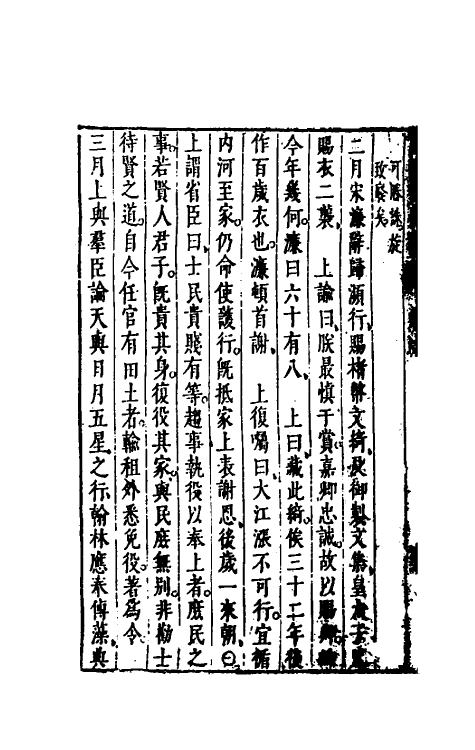 可勝議哉
致發矣
二月宋濂辭歸瀕行賜楮幣文綺及御製文集皇太子
賜衣二襲　上諭曰朕最慎于賞嘉卿忠誠故以賜卿
今年幾何濂曰六十有八　上曰藏此綺俟三十二年後
作百歲衣也濂頓首謝　上復囑曰大江漲不可行宜循
内河至家仍命使護行既抵家上表謝恩後歲一來朝曰
上謂省臣曰士民貴賤有等趨事執役以奉上者庶民之
事若賢人君子既貴其身復役其家與民庶無别非勸士
待賢之道自今任官有田土者輸租外悉免役著爲令
三月上與羣臣論天與日月五星之行翰林應奉傅藻典